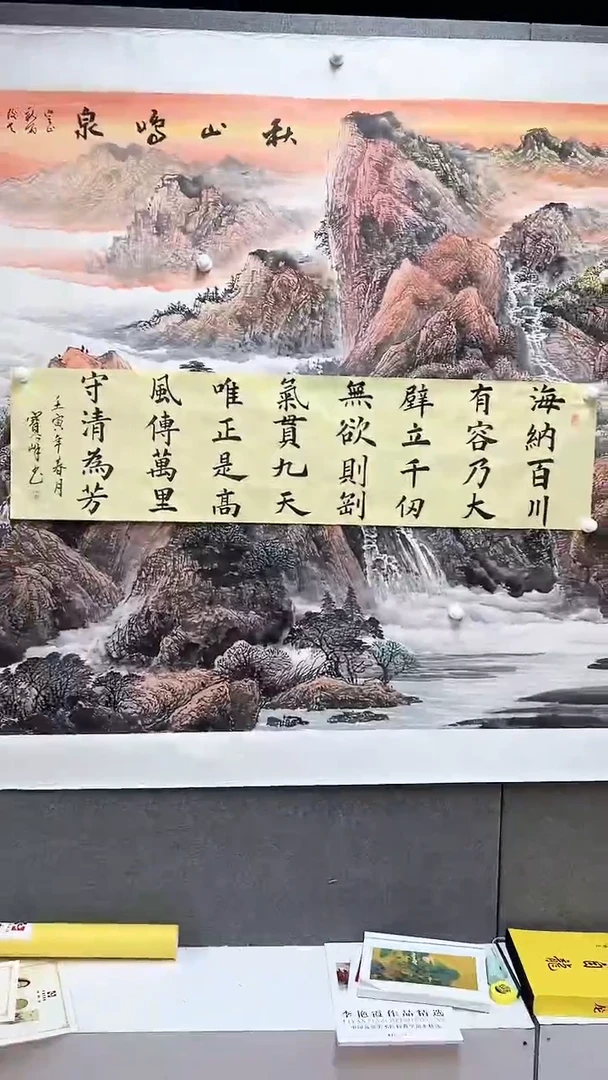 秋山鳴泉
海納百川
有容乃大
壁立千仞
無欲則剛
氣貫九天
唯正是髙
風傳萬里
守清為芳
壬寅年春月
寶峰書
李艳霞作品精选